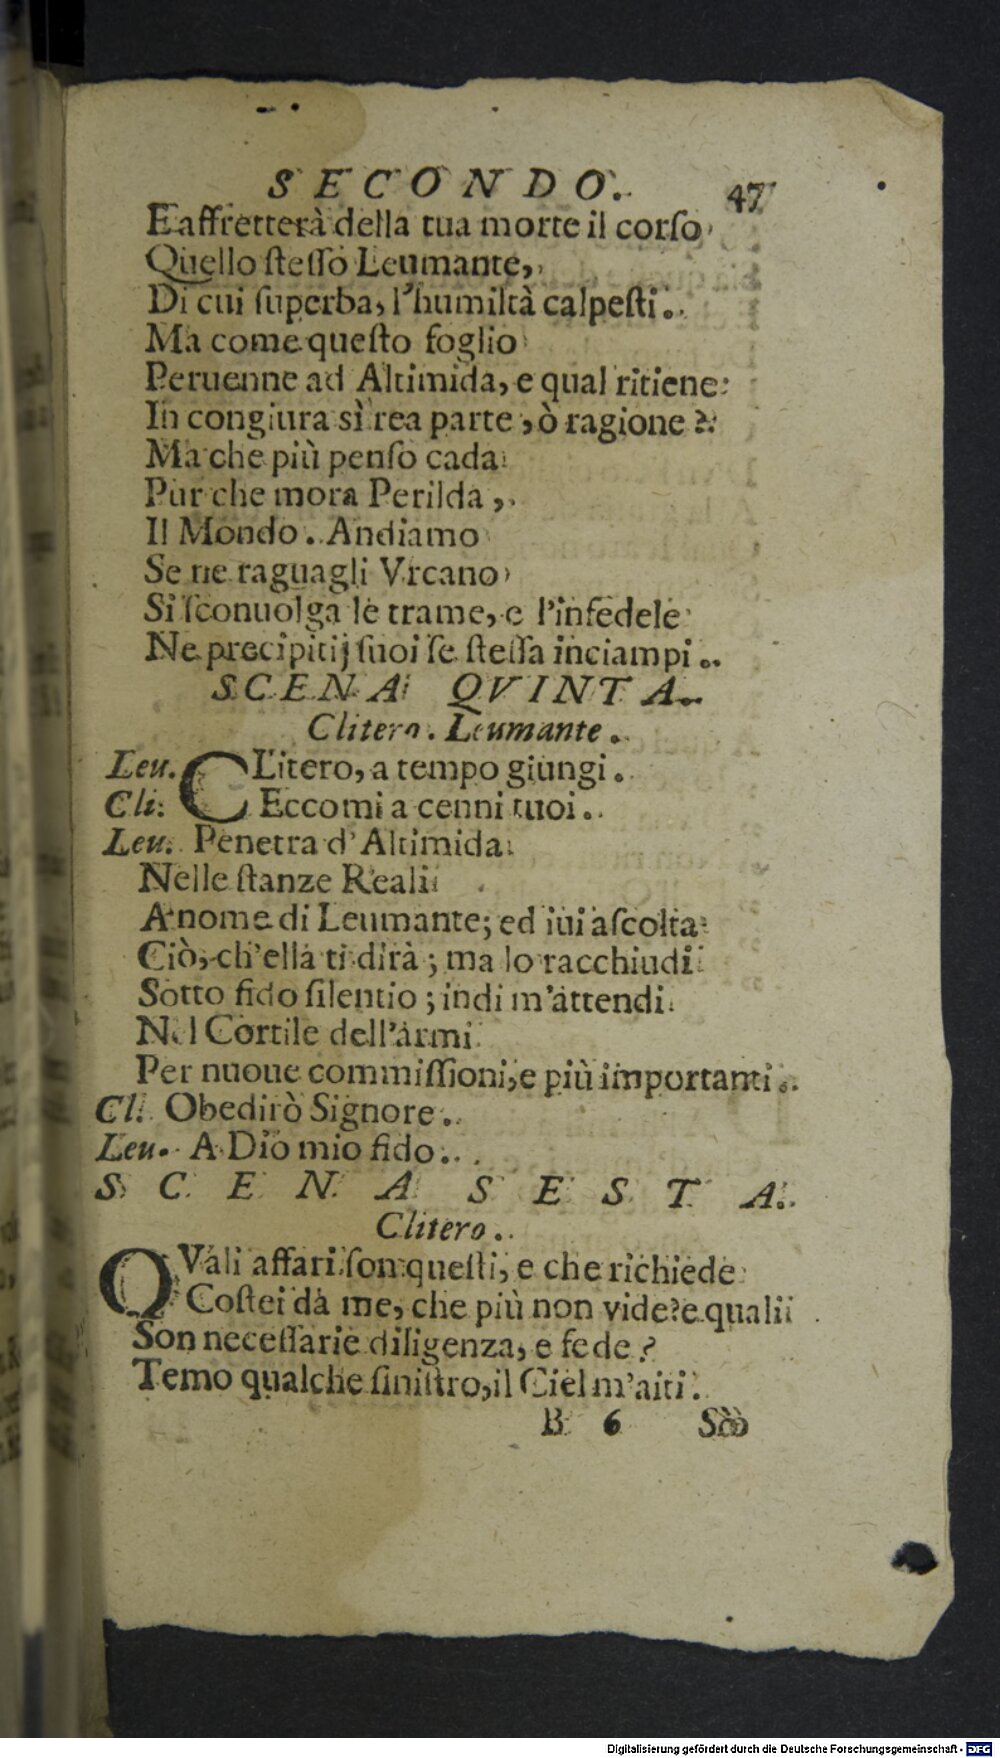 SECONDO. 47
E affretterà della tua morte il corſo
Quello ſteſſo Leumante,
Di cui ſuperba, l'humiltà calpeſti.
Ma come queſto foglio
Peruenne ad Altimida, e qual ritiene
In congiura sì rea parte, ò ragione?
Ma che più penſo cada
Pur che mora Perilda,
Il Mondo. Andiamo
Se ne raguagli Vrcano
Si ſconuolga le trame, e l'infedele
Ne precipitij ſuoi ſe ſteſſa inciampi.
SCENA QVINTA.
Clitero. Leumante.
Leu. CLitero, a tempo giungi.
Cli. Eccomi a cenni tuoi.
Leu. Penetra d'Altimida
Nelle ſtanze Reali
A nome di Leumante; ed iui aſcolta
Ciò, ch'ella ti dirà; ma lo racchiudi
Sotto fido ſilentio; indi m'attendi
Nel Cortile dell'armi
Per nuoue commiſſioni, e più importanti.
Cli. Obedirò Signore.
Leu. A Dio mio fido.
SCENA SESTA.
Clitero.
QVali affari ſon queſti, e che richiede
Coſtei da me, che più non vide? e quali
Son neceſſarie diligenza, e fede?
Temo qualche ſiniſtro, il Ciel m'aiti.
B 6 Sò
Digitalisierung gefördert durch die Deutsche Forschungsgemeinschaft - DFG